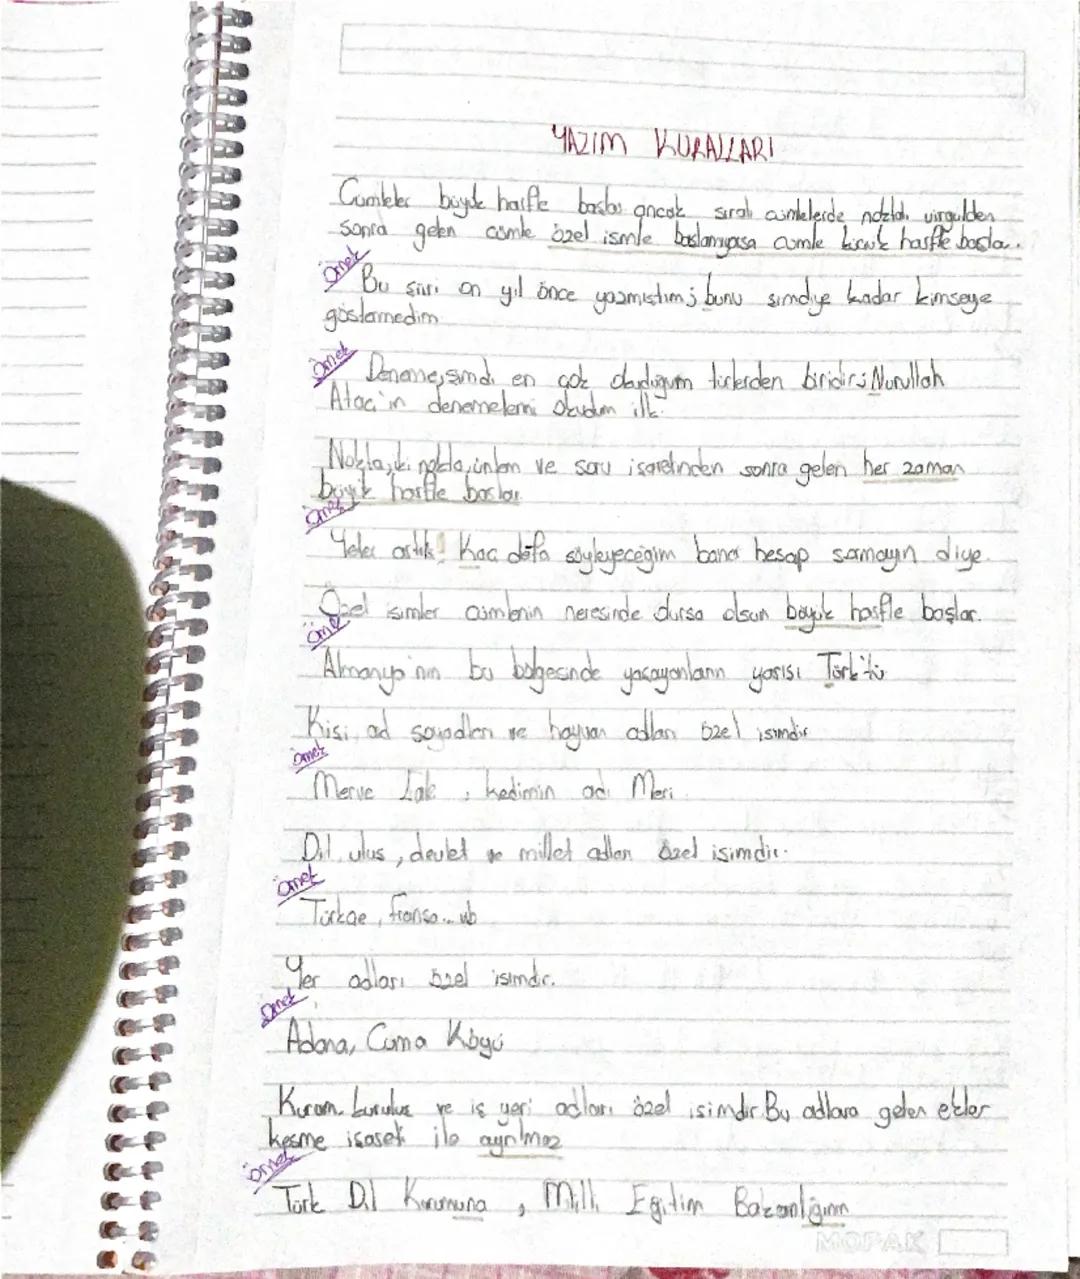 YAZIM KURALLARI
Cümleler büyük harfle başlar ancak sıralı cümlelerde noktalı virgülden
sonra gelen cümle özel isimle başlamıyorsa cümle küçük harfle başlar.
Örnek
Bu şiiri on yıl önce yazmıştım; bunu şimdiye kadar kimseye
göstermedim
Örnek
Deneme, şimdi en çok okuduğum türlerden biridir; Nurullah
Ataç'ın denemelerini okudum ilk.
Nokta, iki nokta, ünlem ve soru işaretinden sonra gelen her zaman
büyük harfle başlar
Örnek
Yeter artık! Kaç defa söyleyeceğim bana hesap sormayın diye.
Özel isimler cümlenin neresinde olursa olsun büyük harfle başlar.
Örnek
Almanya'nın bu bölgesinde yaşayanların yarısı Türk'tü
Kişi ad soyadları ve hayvan adları özel isimdir
Örnek
Merve , kedimin adı Meri
Dil, ulus, devlet ve millet adları özel isimdir.
Örnek
Türkçe, Fransa... vb
Yer adları özel isimdir.
Örnek
Adana, Cuma Köyü
Kurum, kuruluş ve iş yeri adları özel isimdir. Bu adlara gelen ekler
kesme işareti ile ayrılmaz
Örnek
Türk Dil Kurumuna , Milli Eğitim Bakanlığının
MOPAK